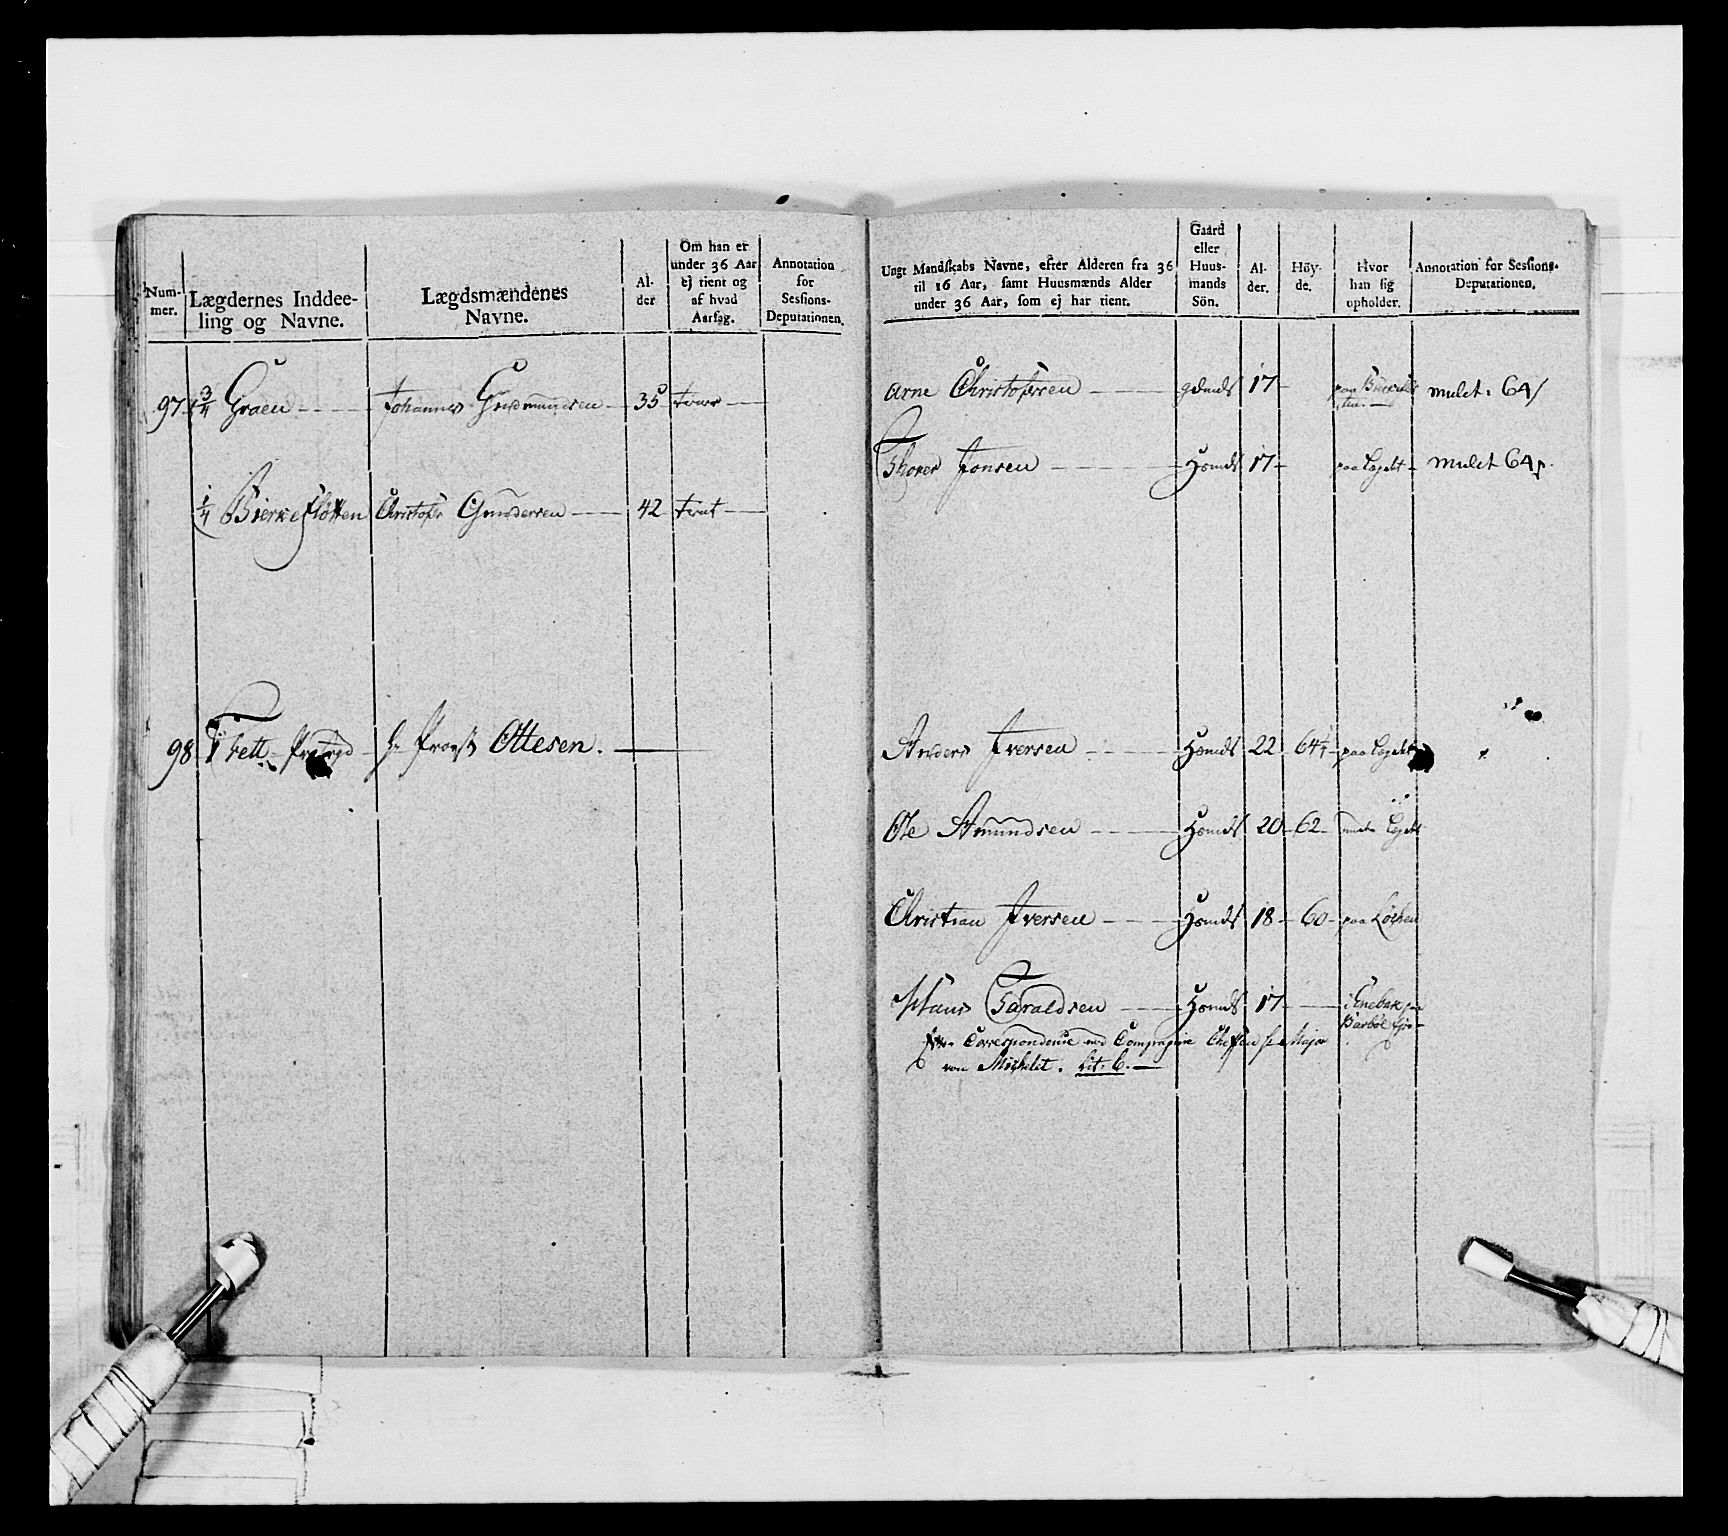 Num-
mer.
Lægdernes Inddee-
ling og Navne.
Lægdsmændenes
Navne.
Al-
der
Om han er
under 36 Aar
ej tient og
af hvad
Aarsag.
Annotation
for
Sessions-
Deputationen.
97 3/4 Graen Johannes Gudmundsen 35 tient
1/4 Bierkesløtten Christofer Gundersen 42 tient
98 1 Fett Hr Provst Ottesen.
Ungt Mandskabs Navne, efter Alderen fra 36
til 16 Aar, samt Huusmænds Alder
under 36 Aar, som ej har tient.
Gaard
eller
Huus-
mands
Sön.
Al-
der.
Höy-
de.
Hvor
han sig
opholder.
Annotation for Sessions-
Deputationen.
Arne Christofersen 17 paa mulct. 64
Thorer Jonsen 17 paa Lægdet mulct 64
Anders Iversen 22 64 paa Lægdet
Ole Amundsen 20 62 Lægdet
Christian Iversen 18 60 paa
Hans Taraldsen 17 i Enebak
Correspondence med Compagnie Cheffen Hr Major
von Michelet. Lit. C.